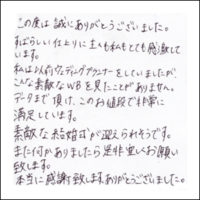 この度は誠にありがとうございました。
すばらしい仕上りに主人も私もとても感激して
います。
私は以前ウェディングプランナーをしていましたが、
こんな素敵なWBを見たことがありません。
データまで頂け、このお値段で非常に
満足しています。
素敵な結婚式が迎えられそうです。
また何かありましたら是非宜しくお願い
致します。
本当に感謝致します。ありがとうございました。